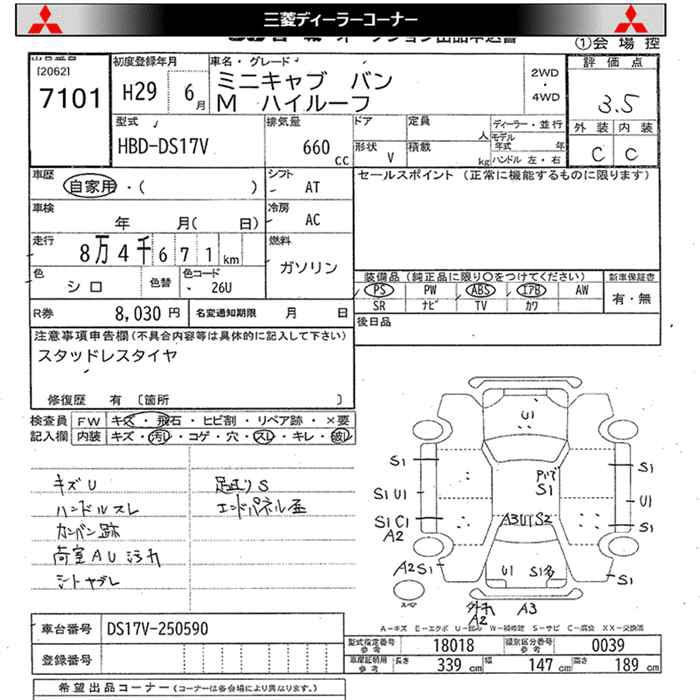 三菱ディーラーコーナー
①会場控
出品番号
[2062]
7101
初度登録年月
H29 6月
車名・グレード
ミニキャブ バン
M ハイルーフ
2WD
・
4WD
評価点
3.5
外装 内装
C C
型式
HBD-DS17V
排気量
660 cc
ドア
形状 V
定員 人
積載 kg
ディーラー・並行
モデル年式 年
ハンドル 左・右
車歴
自家用・( )
シフト
AT
セールスポイント (正常に機能するものに限ります)
車検
年 月( 日)
冷房
AC
走行
8万4千671km
燃料
ガソリン
色
シロ
色替
色コード
26U
装備品(純正品に限り○をつけてください)
新車保証書
PS PW ABS エアB AW
SR ナビ TV カワ
有・無
R券 8,030円
名変通知期限 月 日
後日品
注意事項申告欄(不具合内容等は具体的に記入して下さい)
スタッドレスタイヤ
修復歴 有 〔箇所 〕
検査員 FW キズ・飛石・ヒビ割・リペア跡・×要
記入欄 内装 キズ・汚レ・コゲ・穴・スレ・キレ・破レ
キズU
ハンドルスレ
カンバン跡
荷室AU汚れ
シートヤブレ
足廻りS
エンドパネル歪
U1
S1
S1 U1
S1 C1
A2
A2 S1
S1
S1
U1
S1
S1
A3U1S2
U1
S1多
A2
A3
S1
車台番号 DS17V-250590
登録番号
A-キズ E-エクボ U-凹ミ W-補修跡 S-サビ C-腐食 XX-交換済
型式指定番号
参考
18018
類別区分番号
参考
0039
車庫証明用
参考
長さ 339cm
幅 147cm
高さ 189cm
希望出品コーナー(コーナーは各会場により異なります。)